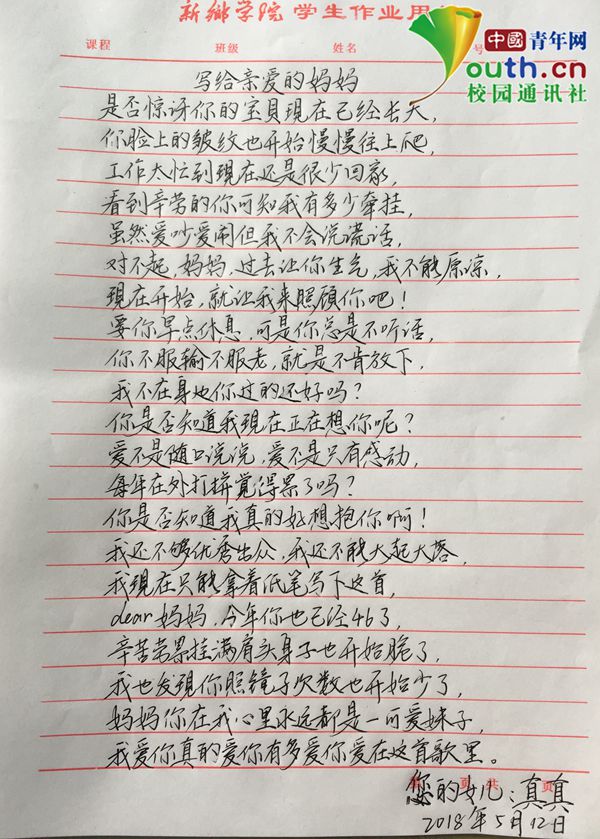 新鄉学院 学生作业用
中國青年网
youth.cn
校园通讯社
课程 班级 姓名 号
写给亲爱的妈妈
是否惊讶你的宝贝现在已经长大,
你脸上的皱纹也开始慢慢往上爬,
工作太忙到现在还是很少回家,
看到辛劳的你可知我有多少牵挂,
虽然爱吵爱闹但我不会说谎话,
对不起,妈妈,过去让你生气,我不能原凉,
现在开始,就让我来照顾你吧!
要你早点休息,可是你总是不听话,
你不服输不服老,就是不肯放下,
我不在身边你过的还好吗?
你是否知道我现在正在想你呢?
爱不是随口说说,爱不是只有感动,
每年在外打拼觉得累了吗?
你是否知道我真的好想抱你啊!
我还不够优秀出众,我还不能大起大落,
我现在只能拿着纸笔写下这首,
dear妈妈,今年你也已经46了,
辛苦劳累挂满肩头身子也开始脆了,
我也发现你照镜子次数也开始少了,
妈妈你在我心里永远都是一可爱妹子,
我爱你真的爱你有多爱你爱在这首歌里。
第 页 共 页
您的女儿:真真
2018年5月12日